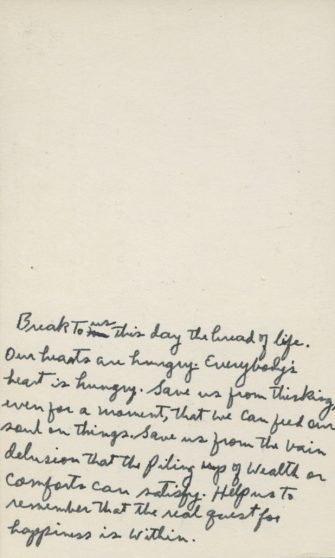 Break to us this day the bread of life.
Our hearts are hungry. Everybody's
heart is hungry. Save us from thinking,
even for a moment, that we can feed our
soul on things. Save us from the vain
delusion that the piling up of wealth or
comforts can satisfy. Help us to
remember that the real quest for
happiness is within.